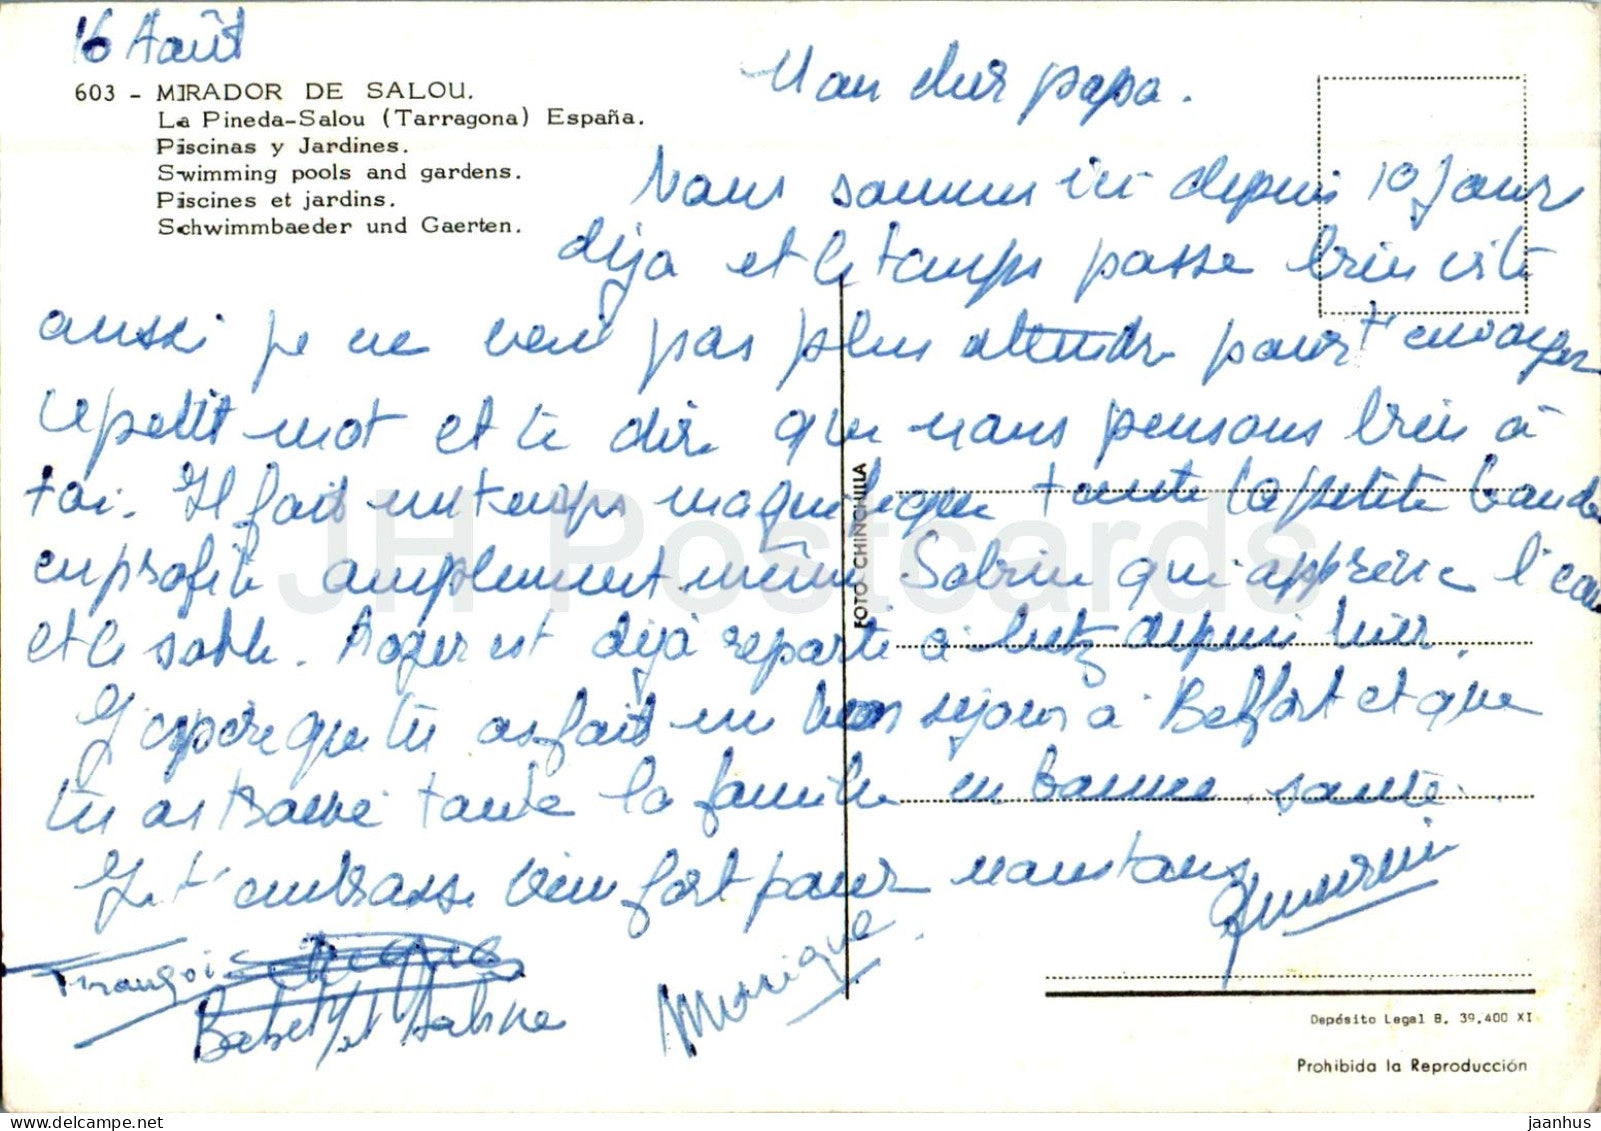 16 Août
603 - MIRADOR DE SALOU.
La Pineda-Salou (Tarragona) España.
Piscinas y Jardines.
Swimming pools and gardens.
Piscines et jardins.
Schwimmbaeder und Gaerten.
Mon cher papa.
Nous sommes ici depuis 10 jours
déja et le temps passe bien vite
aussi je ne veux pas plus attendre pour t'envoyer
ce petit mot et te dire que nous pensons bien à
toi. Il fait un temps magnifique toute la petite bande
en profite amplement même Sabine qui apprécie l'eau
et le sable. Roger est déjà reparti à Metz depuis hier.
J'espère que tu as fait un bon séjour à Belfort et que
tu as trouvé toute la famille en bonne santé.
Je t'embrasse bien fort pour nous tous
François
Babeth et Sabine
Monique
FOTO CHINCHILLA
Depósito Legal B. 39.400 XI
Prohibida la Reproducción
JH Postcards
jaanhus